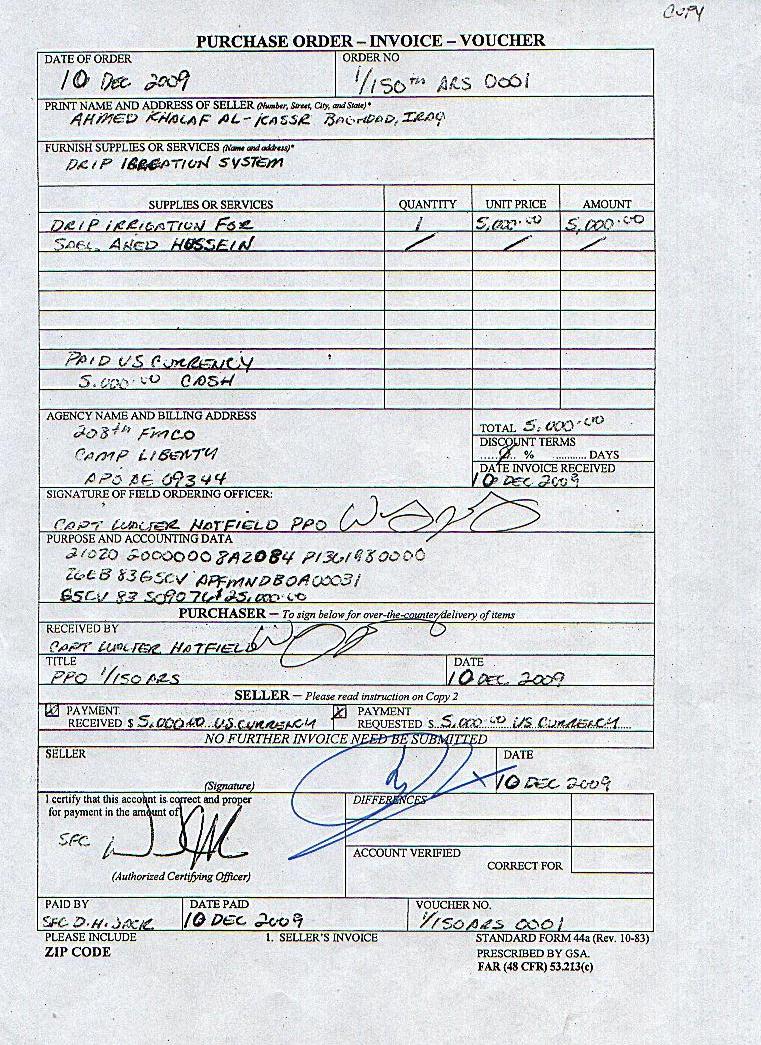 COPY
PURCHASE ORDER – INVOICE – VOUCHER
DATE OF ORDER
10 DEC 2009
ORDER NO
1/150TH ARS 0001
PRINT NAME AND ADDRESS OF SELLER (Number, Street, City, and State)*
AHMED KHALAF AL-KASSR BAGHDAD, IRAQ
FURNISH SUPPLIES OR SERVICES (Name and address)*
DRIP IRREATION SYSTEM
SUPPLIES OR SERVICES QUANTITY UNIT PRICE AMOUNT
DRIP IRRIGATION FOR 1 5,000.00 5,000.00
HUSSEIN
PAID US CURRENCY
5.000.00 CASH
AGENCY NAME AND BILLING ADDRESS
208th FMCO
CAMP LIBERTY
APO AE 09344
TOTAL 5,000.00
DISCOUNT TERMS
% DAYS
DATE INVOICE RECEIVED
10 DEC 2009
SIGNATURE OF FIELD ORDERING OFFICER:
CAPT WALTER HATFIELD PPO
PURPOSE AND ACCOUNTING DATA
21020 2000000 8A2084 P1361980000
$25,000.00
PURCHASER – To sign below for over-the-counter delivery of items
RECEIVED BY
CAPT WALTER HATFIELD
TITLE
PPO 1/150 ARS
DATE
10 DEC 2009
SELLER – Please read instruction on Copy 2
PAYMENT
RECEIVED $ 5,000.00 US CURRENCY
PAYMENT
REQUESTED $ 5,000.00 US CURRENCY
NO FURTHER INVOICE NEED BE SUBMITTED
SELLER
(Signature)
DATE
10 DEC 2009
I certify that this account is correct and proper
for payment in the amount of
SFC
(Authorized Certifying Officer)
DIFFERENCES
ACCOUNT VERIFIED
CORRECT FOR
PAID BY
SFC D.H. JACK
DATE PAID
10 DEC 2009
VOUCHER NO.
1/150 ARS 0001
PLEASE INCLUDE
ZIP CODE
1. SELLER'S INVOICE
STANDARD FORM 44a (Rev. 10-83)
PRESCRIBED BY GSA.
FAR (48 CFR) 53.213(c)